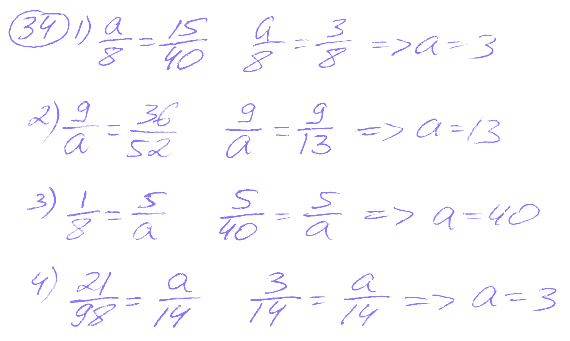 34 1) a/8 = 15/40 a/8 = 3/8 => a = 3
2) 9/a = 36/52 9/a = 9/13 => a = 13
3) 1/8 = 5/a 5/40 = 5/a => a = 40
4) 21/98 = a/14 3/14 = a/14 => a = 3